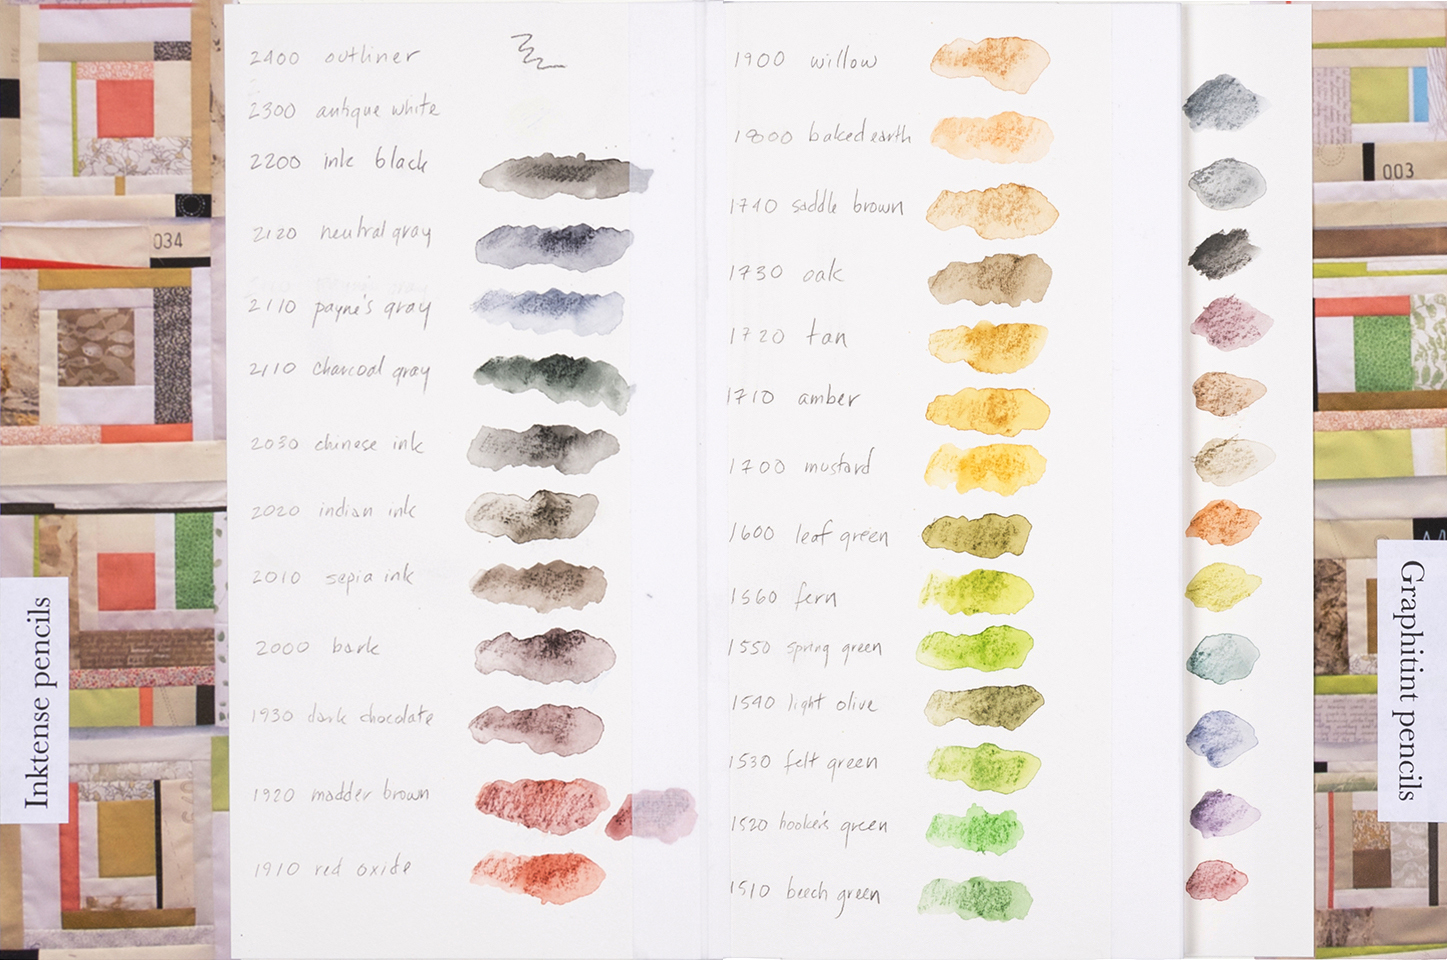 2400 outliner
2300 antique white
2200 ink black
2120 neutral gray
2110 payne's gray
2110 charcoal gray
2030 chinese ink
2020 indian ink
2010 sepia ink
2000 bark
1930 dark chocolate
1920 madder brown
1910 red oxide
1900 willow
1800 baked earth
1740 saddle brown
1730 oak
1720 tan
1710 amber
1700 mustard
1600 leaf green
1560 fern
1550 spring green
1540 light olive
1530 felt green
1520 hooker's green
1510 beech green
Inktense pencils
Graphitint pencils
034
003